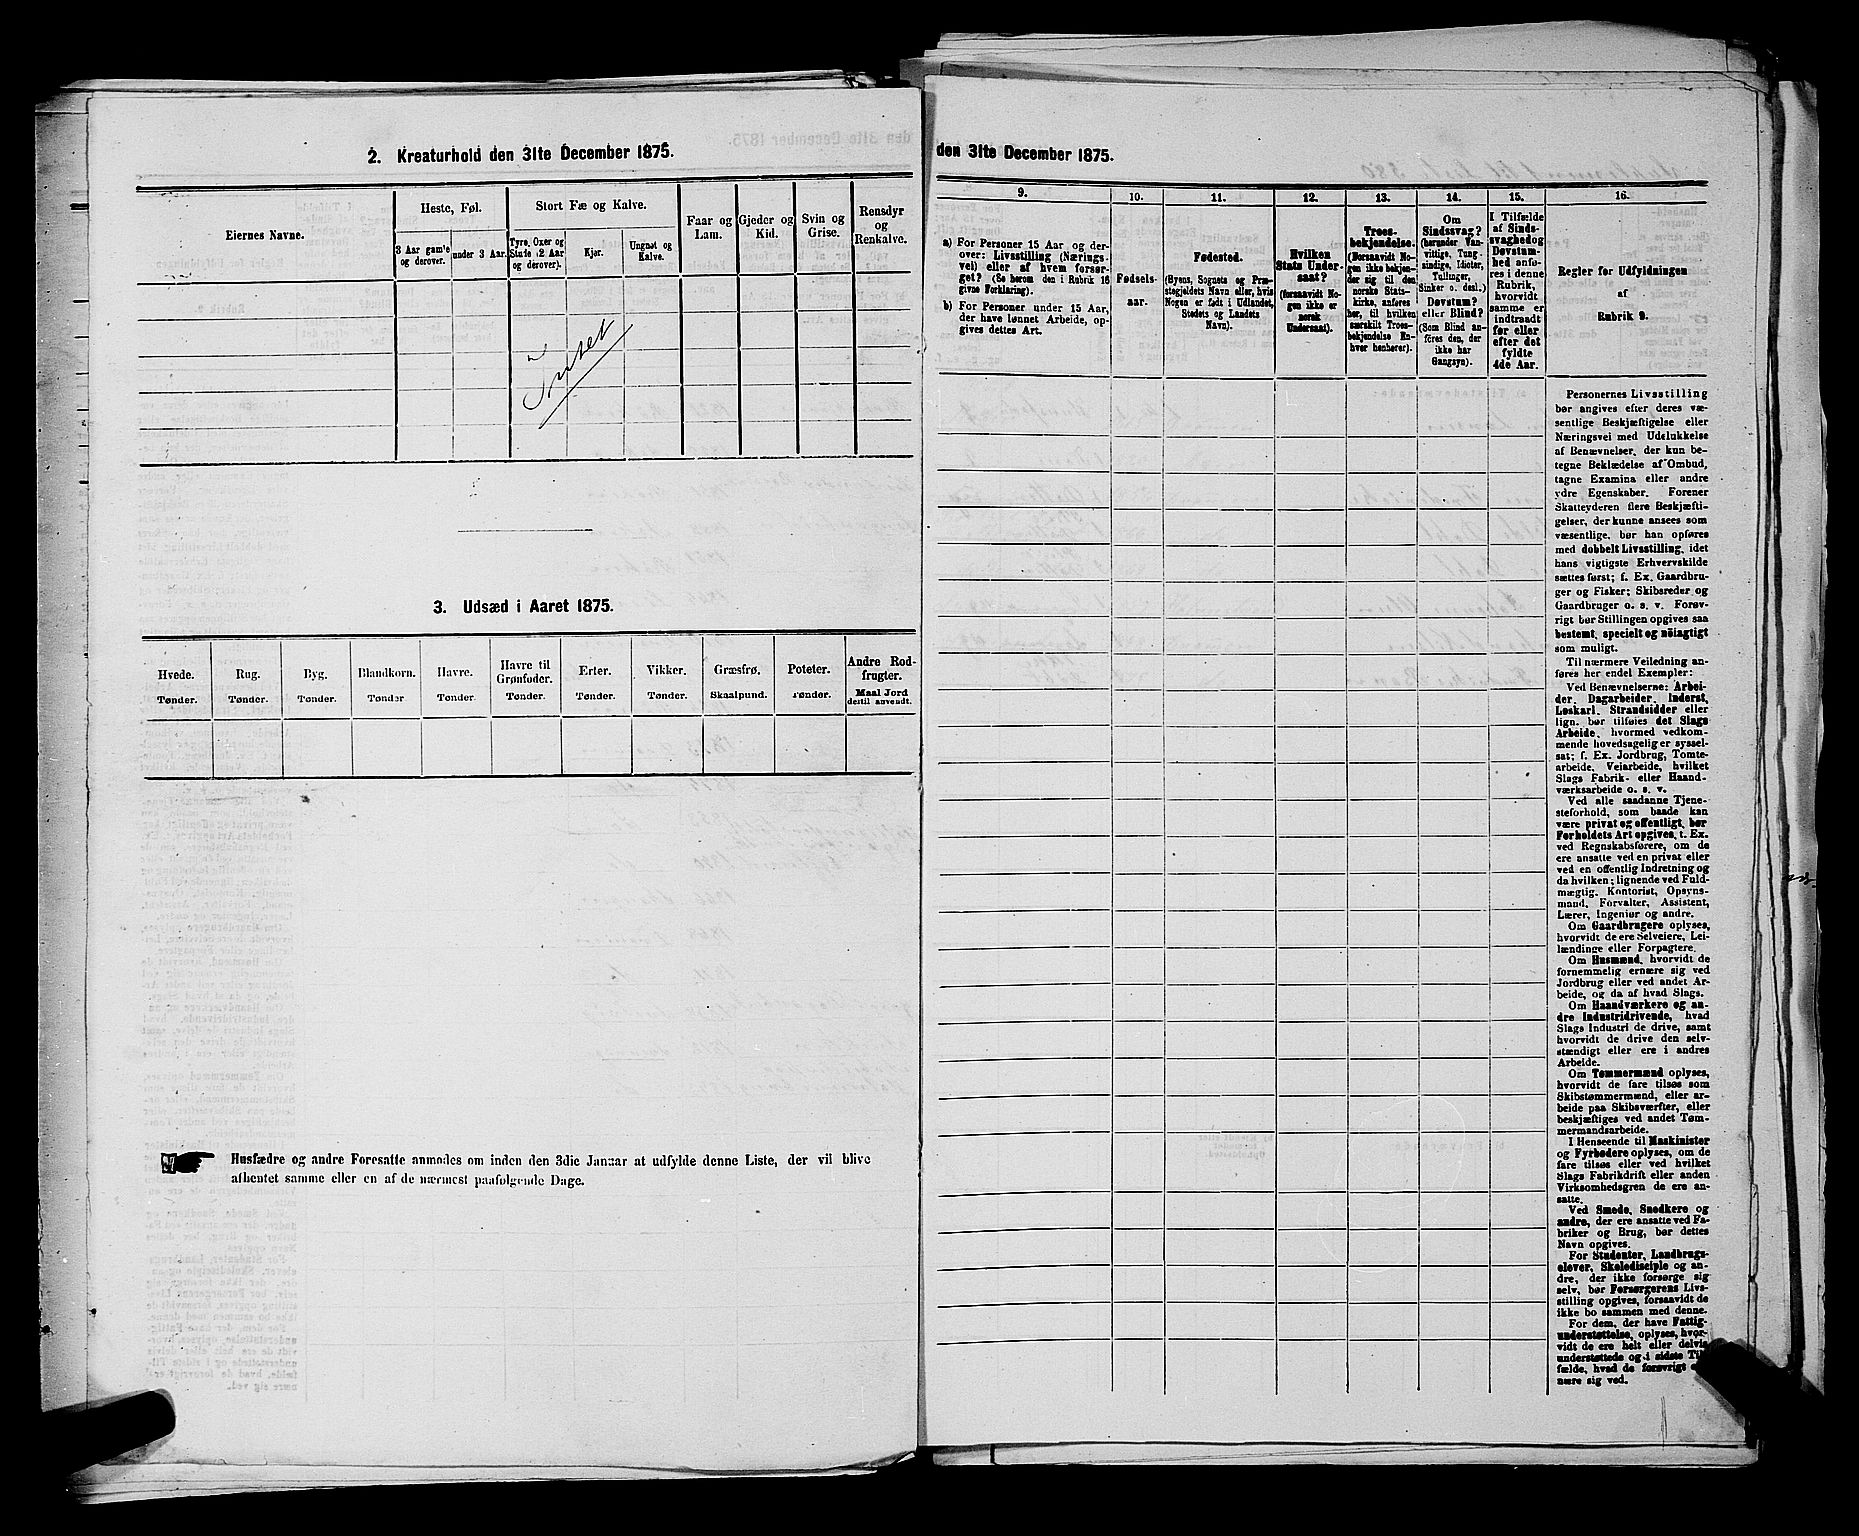 2. Kreaturhold den 31te December 1875.
Eiernes Navne.
Heste, Føl.
3 Aar gamle og derover.
under 3 Aar.
Stort Fæ og Kalve.
Tyre, Oxer og Stude (2 Aar og derover).
Kjør.
Ungnøt og Kalve.
Faar og Lam.
Gjeder og Kid.
Svin og Grise.
Rensdyr og Renkalve.
Intet
3. Udsæd i Aaret 1875.
Hvede. Tønder.
Rug. Tønder.
Byg. Tønder.
Blandkorn. Tønder
Havre. Tønder.
Havre til Grønfoder. Tønder.
Erter. Tønder.
Vikker. Tønder.
Græsfrø. Skaalpund.
Poteter. Tønder.
Andre Rodfrugter. Maal Jord dertil anvendt.
Husfædre og andre Foresatte anmodes om inden den 3die Januar at udfylde denne Liste, der vil blive
afhentet samme eller en af de nærmest paafølgende Dage.
den 31te December 1875.
9.
a) For Personer 15 Aar og derover: Livsstilling (Næringsvei) eller af hvem forsørget? (Se herom den i Rubrik 16 givne Forklaring).
b) For Personer under 15 Aar, der have lønnet Arbeide, opgives dettes Art.
10.
Fødselsaar.
11.
Fødested.
(Byens, Sognets og Præstegjeldets Navn eller, hvis Nogen er født i Udlandet, Stedets og Landets Navn).
12.
Hvilken Stats Undersaat?
(forsaavidt Nogen ikke er norsk Undersaat).
13.
Troesbekjendelse.
(Forsaavidt Nogen ikke bekjender sig til den norske Statskirke, anføres her, til hvilken særskilt Troesbekjendelse Enhver henhører).
14.
Om Sindssvag?
(herunder Vanvittige, Tungsindige, Idioter, Tullinger, Sinker o. desl.)
Døvstum? eller Blind?
(Som Blind anføres den, der ikke har Gangsyn).
15.
I Tilfælde af Sindssvaghed og Døvstumhed anføres i denne Rubrik, hvorvidt samme er indtraadt før eller efter det fyldte 4de Aar.
16.
Regler for Udfyldningen
af
Rubrik 9.
Personernes Livsstilling
bør angives efter deres væ-
sentlige Beskjæftigelse eller
Næringsvei med Udelukkelse
af Benævnelser, der kun be-
tegne Beklædelse af Ombud,
tagne Examina eller andre
ydre Egenskaber. Forener
Skatteyderen flere Beskjæfti-
gelser, der kunne ansees som
væsentlige, bør han opføres
med dobbelt Livsstilling, idet
hans vigtigste Erhvervskilde
sættes først; f. Ex. Gaardbru-
ger og Fisker; Skibsreder og
Gaardbruger o. s. v. Forøv-
rigt bør Stillingen opgives saa
bestemt, specielt og nøiagtigt
som muligt.
Til nærmere Veiledning an-
føres her endel Exempler:
Ved Benævnelserne: Arbei-
der, Dagarbeider, Inderst,
Løskarl, Strandsidder eller
lign. bør tilføies det Slags
Arbeide, hvormed vedkom-
mende hovedsagelig er syssel-
sat; f. Ex. Jordbrug, Tomte-
arbeide, Veiarbeide, hvilket
Slags Fabrik- eller Haand-
værksarbeide o. s. v.
Ved alle saadanne Tjene-
steforhold, som baade kan
være privat og offentligt, bør
Forholdets Art opgives, t. Ex.
ved Regnskabsførere, om de
ere ansatte ved en privat eller
ved en offentlig Indretning og
da hvilken; lignende ved Fuld-
mægtig, Kontorist, Opsyns-
mand, Forvalter, Assistent,
Lærer, Ingeniør og andre.
Om Gaardbrugere oplyses,
hvorvidt de ere Selveiere, Lei-
lændinge eller Forpagtere.
Om Husmænd, hvorvidt de
fornemmelig ernære sig ved
Jordbrug eller ved andet Ar-
beide, og da af hvad Slags.
Om Haandværkere og an-
dre Industridrivende, hvad
Slags Industri de drive, samt
hvorvidt de drive den selv-
stændigt eller ere i andres
Arbeide.
Om Tømmermænd oplyses,
hvorvidt de fare tilsøs som
Skibstømmermænd, eller ar-
beide paa Skibsværfter, eller
beskjæftiges ved andet Tøm-
mermandsarbeide.
I Henseende til Maskinister
og Fyrbødere oplyses, om de
fare tilsøs eller ved hvilket
Slags Fabrikdrift eller anden
Virksomhedsgren de ere an-
satte.
Ved Smede, Snedkere og
andre, der ere ansatte ved Fa-
briker og Brug, bør dettes
Navn opgives.
For Studenter, Landbrugs-
elever, Skoledisciple og an-
dre, der ikke forsørge sig
selv, bør Forsørgerens Livs-
stilling opgives, forsaavidt de
ikke bo sammen med denne.
For dem, der have Fattig-
understøttelse, oplyses, hvor-
vidt de ere helt eller delvis
understøttede og i sidste Til-
fælde, hvad de forøvrigt er-
nære sig ved.